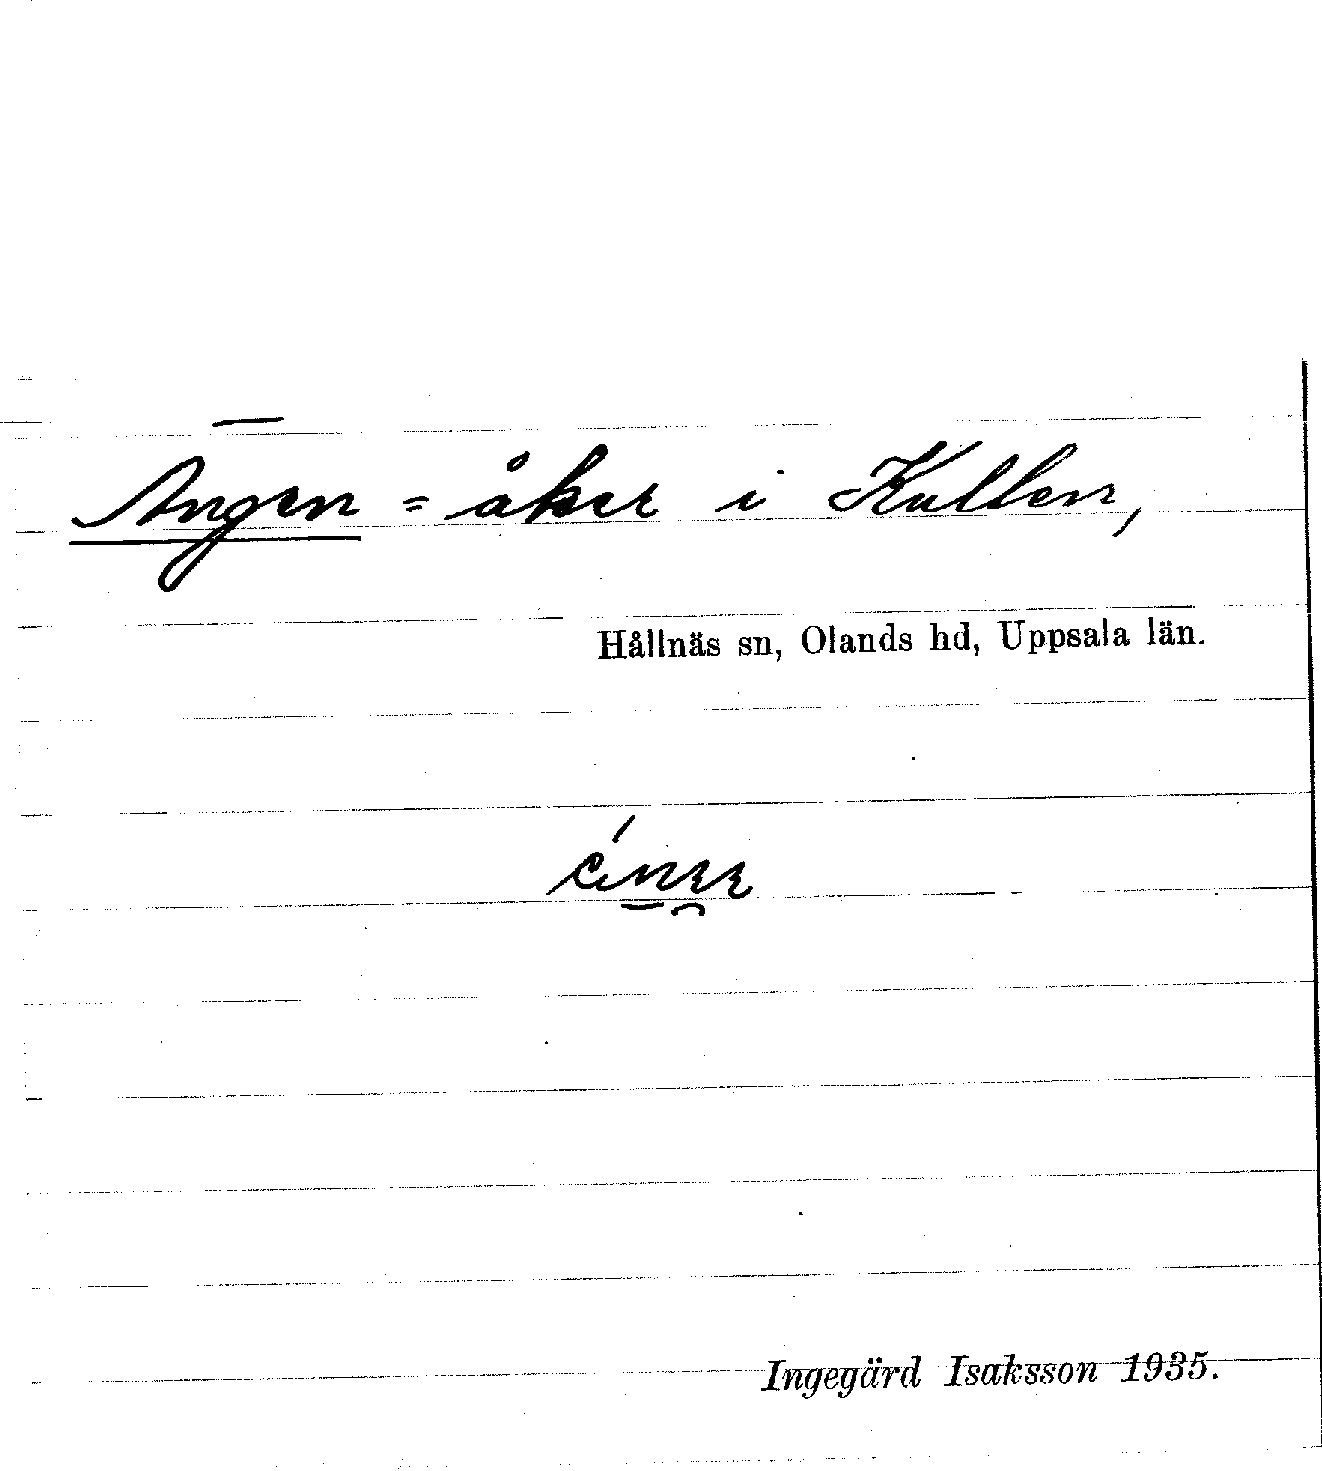 Ängen = åker i Kullen,
Hållnäs sn, Olands hd, Uppsala län.
Ingegärd Isaksson 1935.